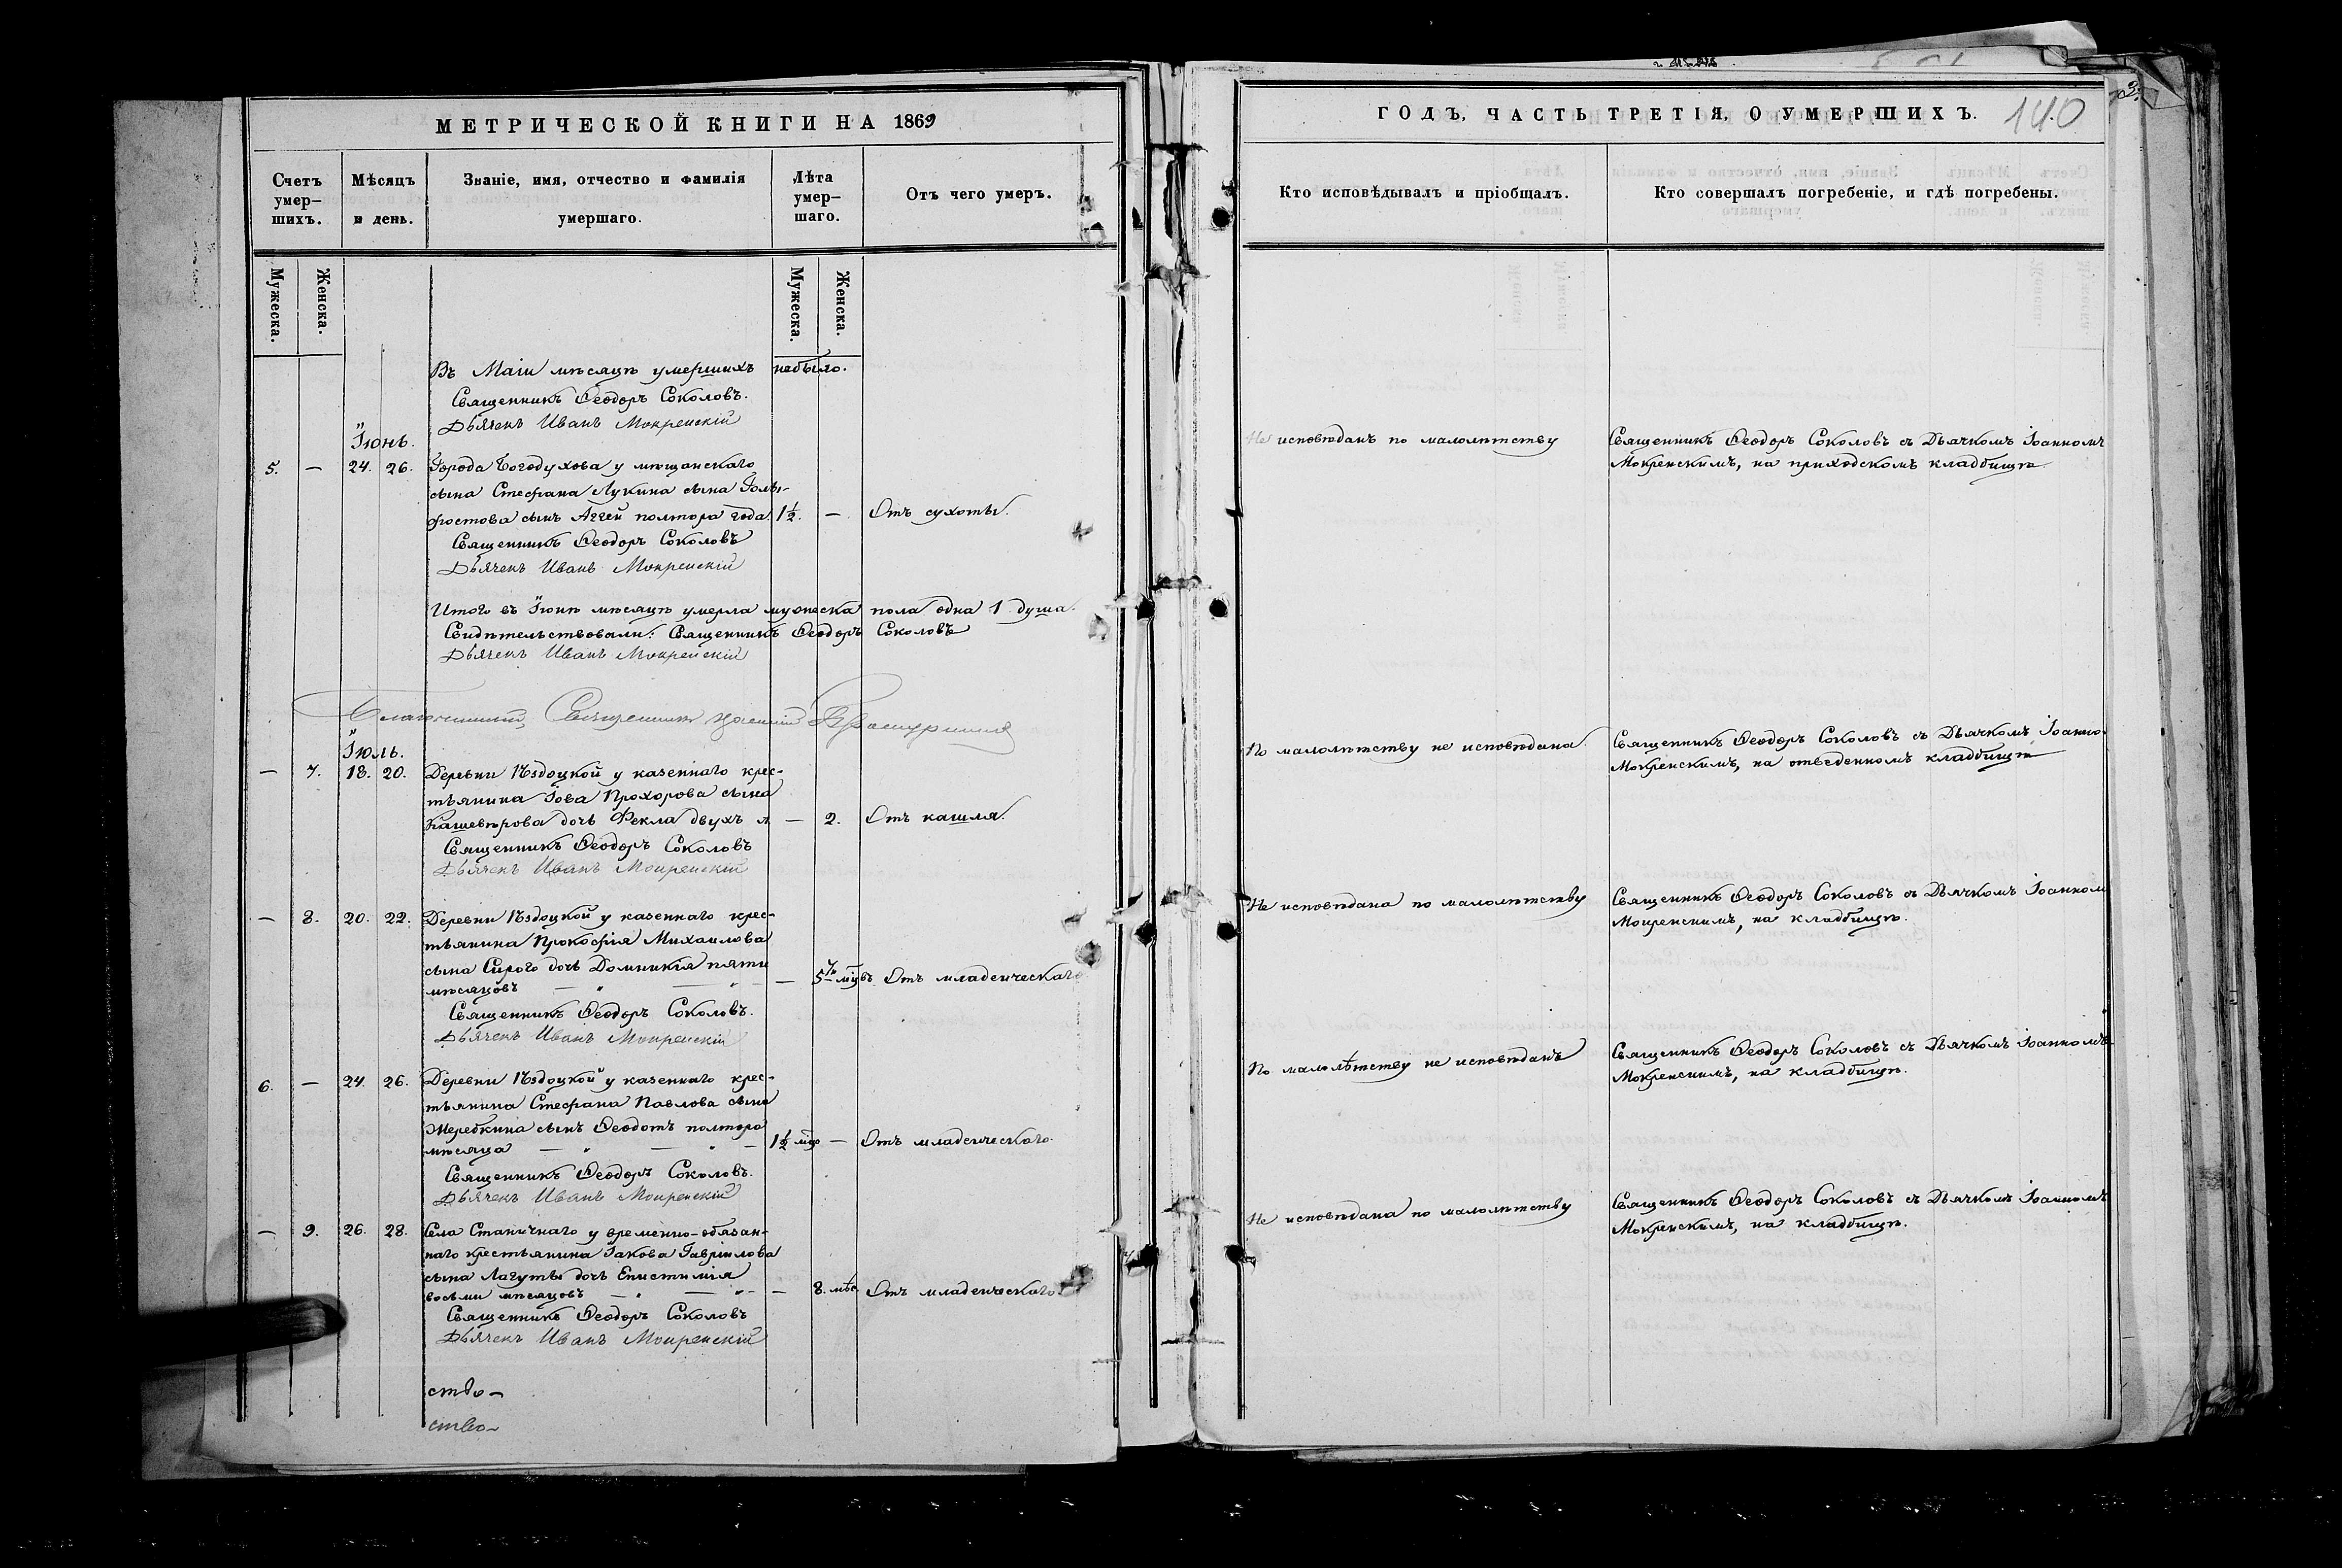 МЕТРИЧЕСКОЙ КНИГИ НА 1869
Счетъ умер-шихъ.
Мѣсяцъ и день.
Званіе, имя, отчество и фамилія умершаго.
Лѣта умер-шаго.
Отъ чего умеръ.
Мужеска.
Женска.
Мужеска.
Женска.
Въ Маіи мѣсяцѣ умершихъ небыло.
Священникъ Ѳеодоръ Соколовъ.
Дьячекъ Иванъ Мокренскій
Іюнь.
5. — 24. 26. Города Богодухова у мѣщанскаго
сына Стефана Лукина сына Голи-
фостова сынъ Аггей полтора года 1½. — Отъ сухоты.
Священникъ Ѳеодоръ Соколовъ
Дьячекъ Иванъ Мокренскій
Итого въ Іюнѣ мѣсяцѣ умерла мужеска пола одна 1 душа.
Свидѣтельствовали: Священникъ Ѳеодоръ Соколовъ
Дьячекъ Иванъ Мокренскій
Благочинный Священникъ
Іюль.
— 7. 18. 20. Деревни Ѣздоцкой у казеннаго крес-
тьянина Іова Прохорова сына
Кашевѣрова дочь Фекла двухъ л. — 2. Отъ кашля.
Священникъ Ѳеодоръ Соколовъ
Дьячекъ Иванъ Мокренскій
— 8. 20. 22. Деревни Ѣздоцкой у казеннаго крес-
тьянина Прокофія Михаилова
сына Сирого дочь Домникія пяти
мѣсяцовъ — " — " — — 5ть мцвъ Отъ младенческаго
Священникъ Ѳеодоръ Соколовъ.
Дьячекъ Иванъ Мокренскій
6. — 24. 26. Деревни Ѣздоцкой у казеннаго крес-
тьянина Стефана Павлова сына
Жеребкина сынъ Ѳеодотъ полтора
мѣсяца — " — " — 1½ мца — Отъ младенческаго.
Священникъ Ѳеодоръ Соколовъ.
Дьячекъ Иванъ Мокренскій
— 9. 26. 28. Села Станичнаго у временно-обязан-
наго крестьянина Іакова Гавріилова
сына Лагуты дочь Епистимія
восьми мѣсяцовъ — " — " — — 8. мѣс. Отъ младенческаго.
Священникъ Ѳеодоръ Соколовъ
Дьячекъ Иванъ Мокренскій
ство-
ство-
ГОДЪ, ЧАСТЬ ТРЕТІЯ, О УМЕРШИХЪ.
140
Кто исповѣдывалъ и пріобщалъ.
Кто совершалъ погребеніе, и гдѣ погребены.
Не исповѣданъ по малолѣтству
Священникъ Ѳеодоръ Соколовъ съ Дьячкомъ Іоанномъ
Мокренскимъ, на приходскомъ кладбищѣ.
По малолѣтству не исповѣдана.
Священникъ Ѳеодоръ Соколовъ съ Дьячкомъ Іоанно
Мокренскимъ, на отведенномъ кладбищѣ
Не исповѣдана по малолѣтству
Священникъ Ѳеодоръ Соколовъ съ Дьячкомъ Іоанном
Мокренскимъ, на кладбищѣ.
По малолѣтству не исповѣданъ
Священникъ Ѳеодоръ Соколовъ съ Дьячкомъ Іоанномъ
Мокренскимъ, на кладбищѣ.
Не исповѣдана по малолѣтству
Священникъ Ѳеодоръ Соколовъ съ Дьячкомъ Іоанномъ
Мокренскимъ, на кладбищѣ.